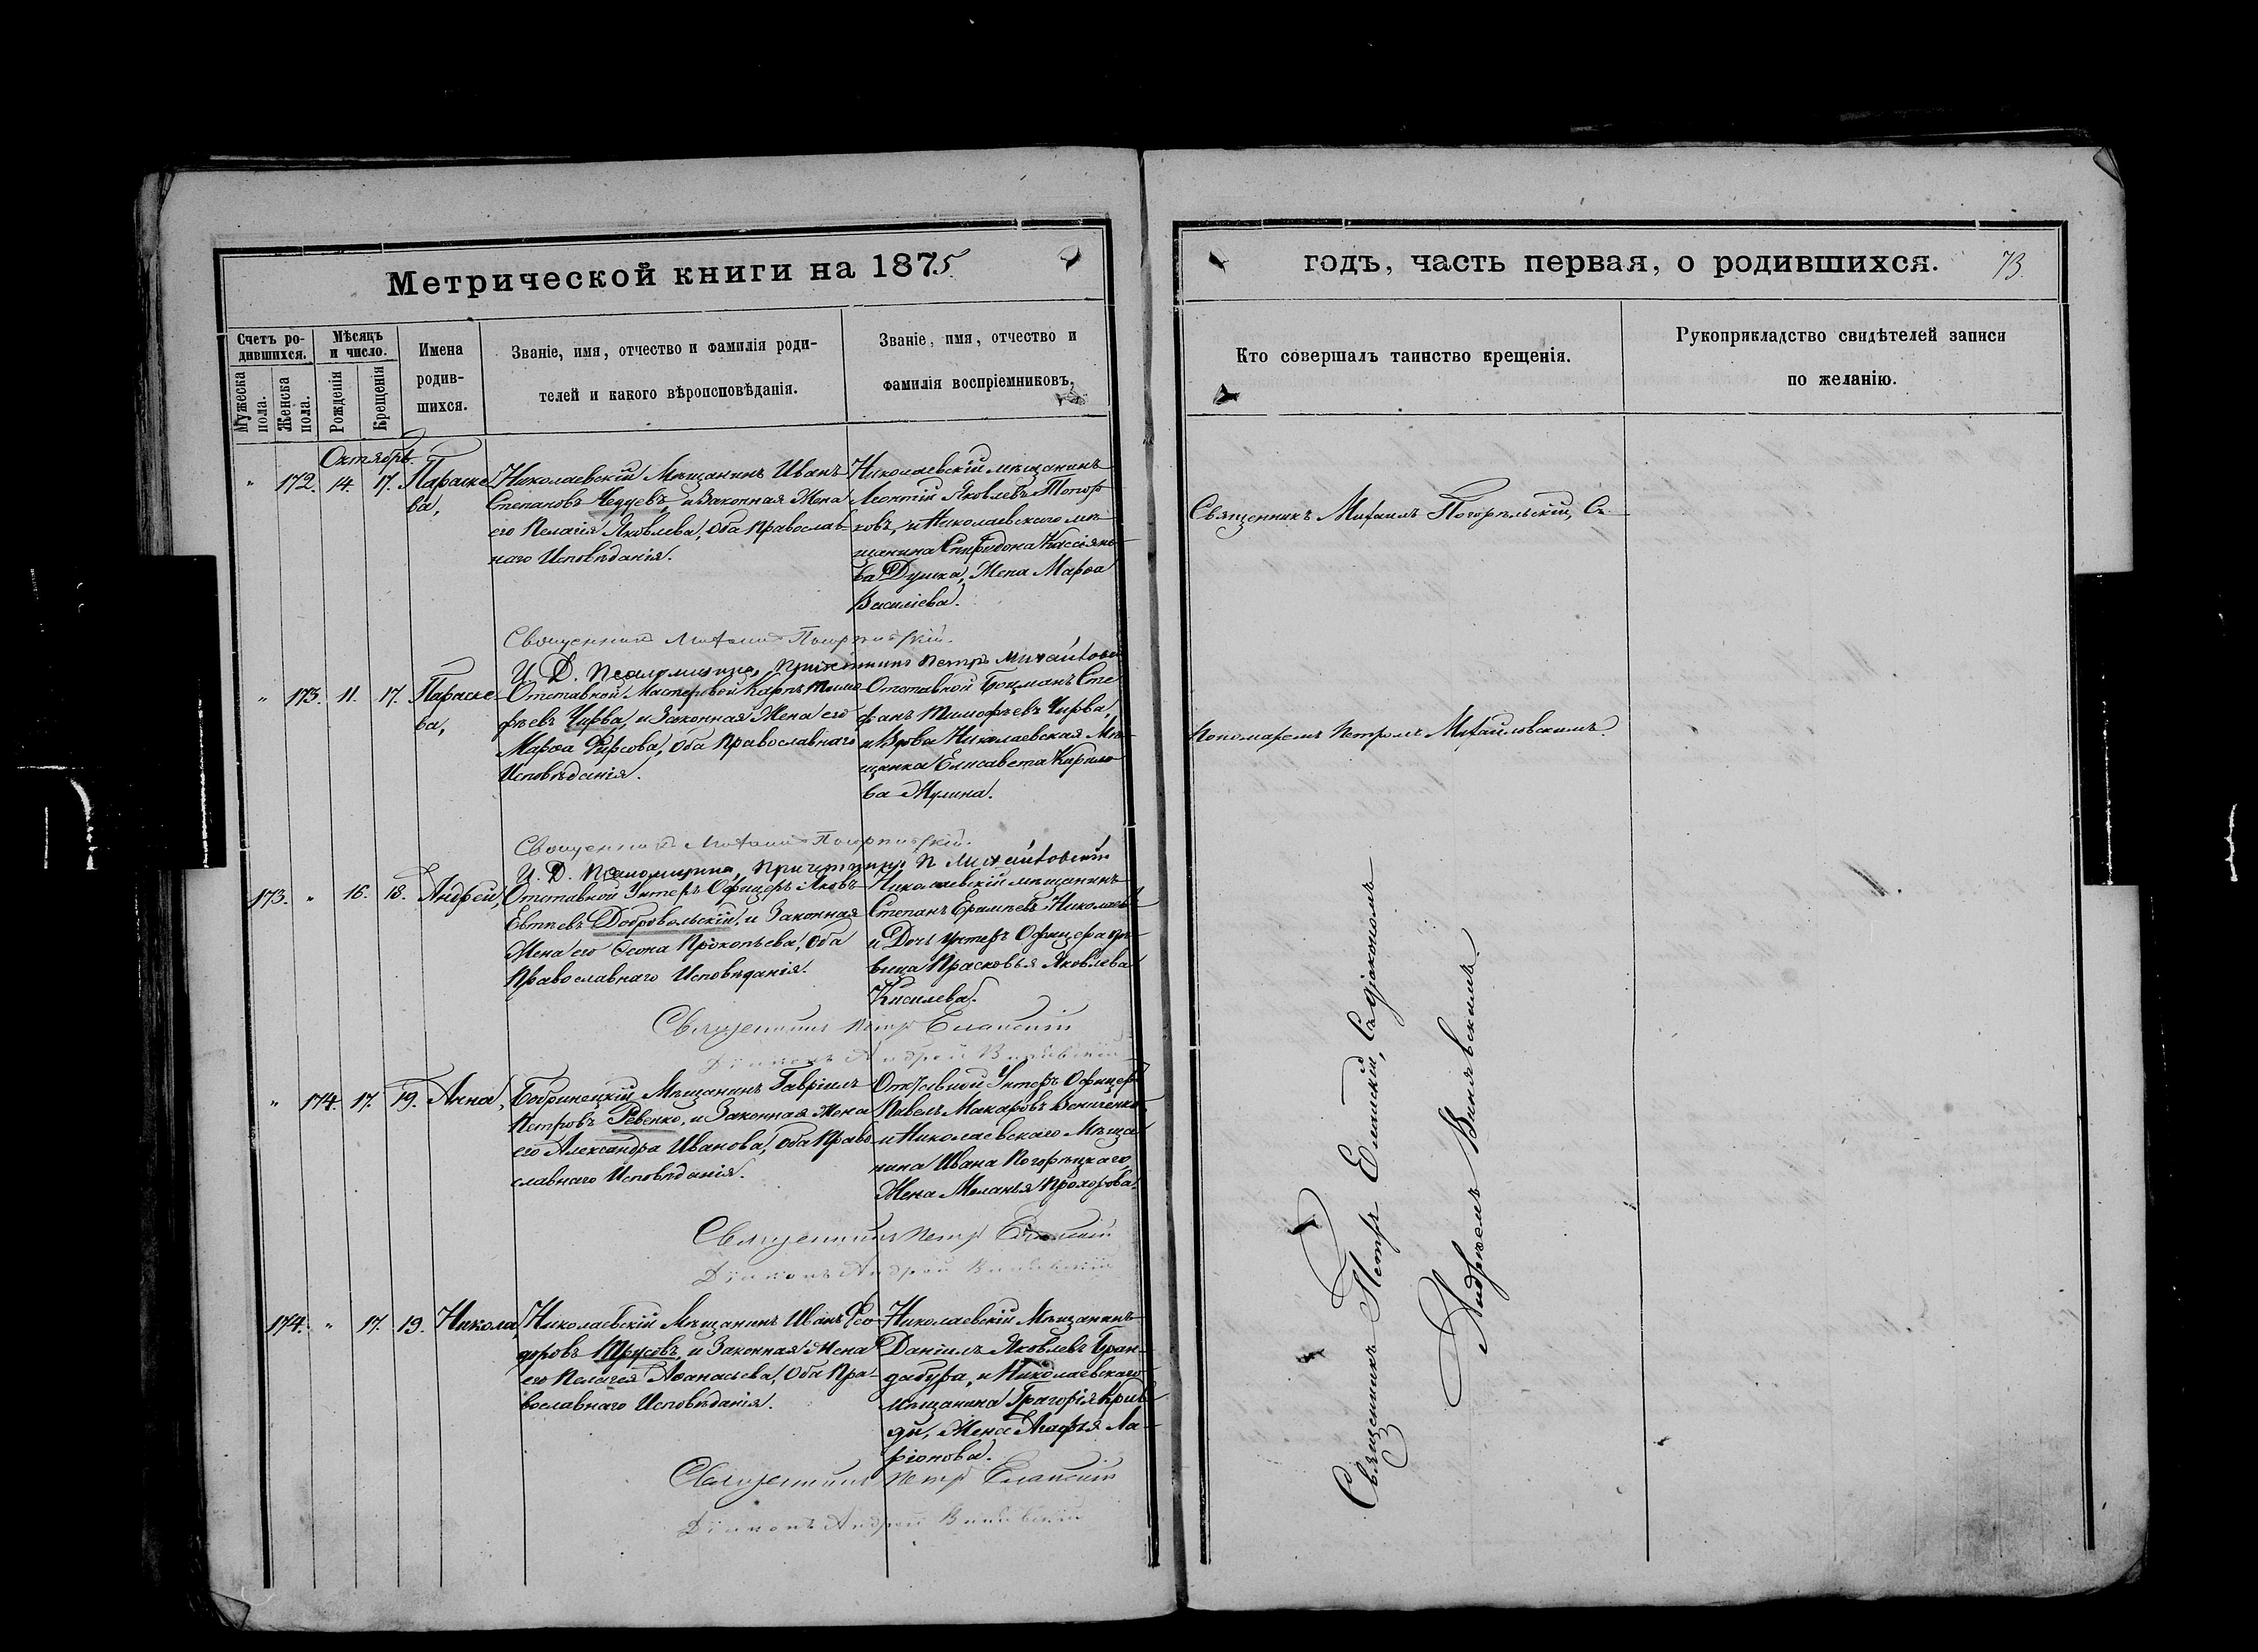 Метрической книги на 1875.
Счетъ родившихся.
Мужеска пола.
Женска пола.
Мѣсяцъ и число.
Рожденія
Крещенія
Имена родив-
шихся.
Званіе, имя, отчество и фамилія роди-
телей и какого вѣроисповѣданія.
Званіе, имя, отчество и
фамилія воспріемниковъ.
Октябрь.
" 172. 14. 17. Параске-
ва,
Николаевскій Мѣщанинъ Иванъ
Степановъ и Законная Жена
его Пелагія Яковлева, оба Православ-
наго Исповѣданія.
Николаевскій мѣщанинъ
Леонтій Яковлевъ Топор
ковъ, и Николаевского мѣ-
щанина Спиридона Кассіяно-
ва Душка, Жена Марѳа
Василіева.
Священникъ Михаилъ Погорѣльскій.
И. Д. Псаломщика, Причетникъ Петръ Михайловскій
" 173. 11. 17. Параске-
ва,
Отставной Мастеровой Карпъ Тимо-
фѣевъ Чирва, и Законная Жена его
Марѳа Фирсова, оба Православнаго
Исповѣданія.
Отставной Боцманъ Сте-
фанъ Тимофѣевъ Чирва,
и Вдова Николаевская Мѣ-
щанка Елисавета Кирило-
ва
Священникъ Михаилъ Погорѣльскій.
И. Д. Псаломщика, Причетникъ П Михайловскій
173. " 16. 18. Андрей,
Отставной Унтеръ Офицеръ Яковъ
Евтѣевъ Добровольскій, и Законная
Жена его Ѳеона Прокопьева, оба
Православнаго Исповѣданія.
Николаевскій мѣщанинъ
Степанъ Николаевъ
и Дочь Унтеръ Офицера дѣ-
вица Прасковья Яковлева
Киселева.
Священникъ Петръ Еланскій
Діаконъ Андрей
" 174. 17. 19. Анна,
Бобринецкій Мѣщанинъ Гавріилъ
Петровъ Ревенко, и Законная Жена
его Александра Иванова, оба Право-
славнаго Исповѣданія.
Отставной Унтеръ Офицеръ
Павелъ Макаровъ
и Николаевскаго Мѣща-
нина Ивана Погорѣцкаго,
Жена Меланья Прохорова.
Священникъ Петръ Еланскій
Діаконъ Андрей
174. " 17. 19. Никола,
Николаевскій Мѣщанинъ Иванъ Ѳео-
доровъ Трусовъ, и Законная Жена
его Пелагея Аѳанасьева, оба Пра-
вославнаго Исповѣданія.
Николаевскій Мѣщанинъ
Даніилъ Яковлевъ Бран-
дабура, и Николаевскаго
мѣщанина Григорія
Жена Агафья Ла-
ріонова.
Священникъ Петръ Еланскій
Діаконъ Андрей
годъ, часть первая, о родившихся. 73
Кто совершалъ таинство крещенія.
Рукоприкладство свидѣтелей записи
по желанію.
Священникъ Михаилъ Погорѣльскій, Съ
Пономаремъ Петромъ Михайловскимъ.
Священникъ Петръ Еланскій, Съ діакономъ
Андреемъ